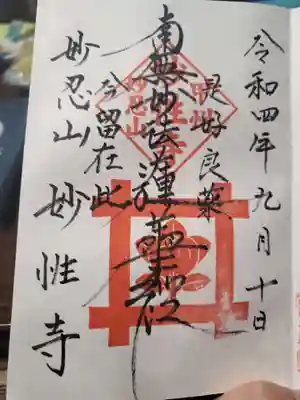 令和四年九月十日
是好良薬
南無妙法蓮華経
今留在此
妙忍山 妙性寺